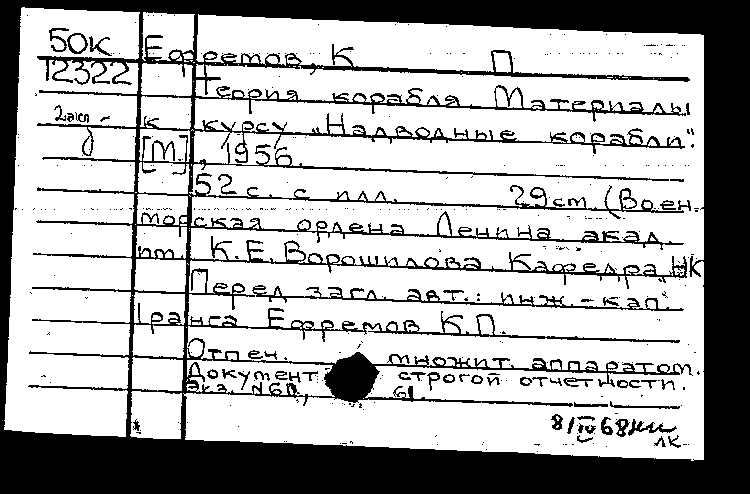 50К Ефремов, К П
12322 Теория корабля. Материалы
2 экз к курсу „Надводные корабли".
б [М.], 1956.
52 с. с илл. 29 см. (Воен.
морская ордена Ленина акад.
им. К.Е. Ворошилова. Кафедра НК
Перед загл. авт.: инж.-кап.
I ранга Ефремов К.П.
Отпеч. множит. аппаратом.
Документ строгой отчетности.
Экз. N 60, 61.
8/IV 68
ЛК